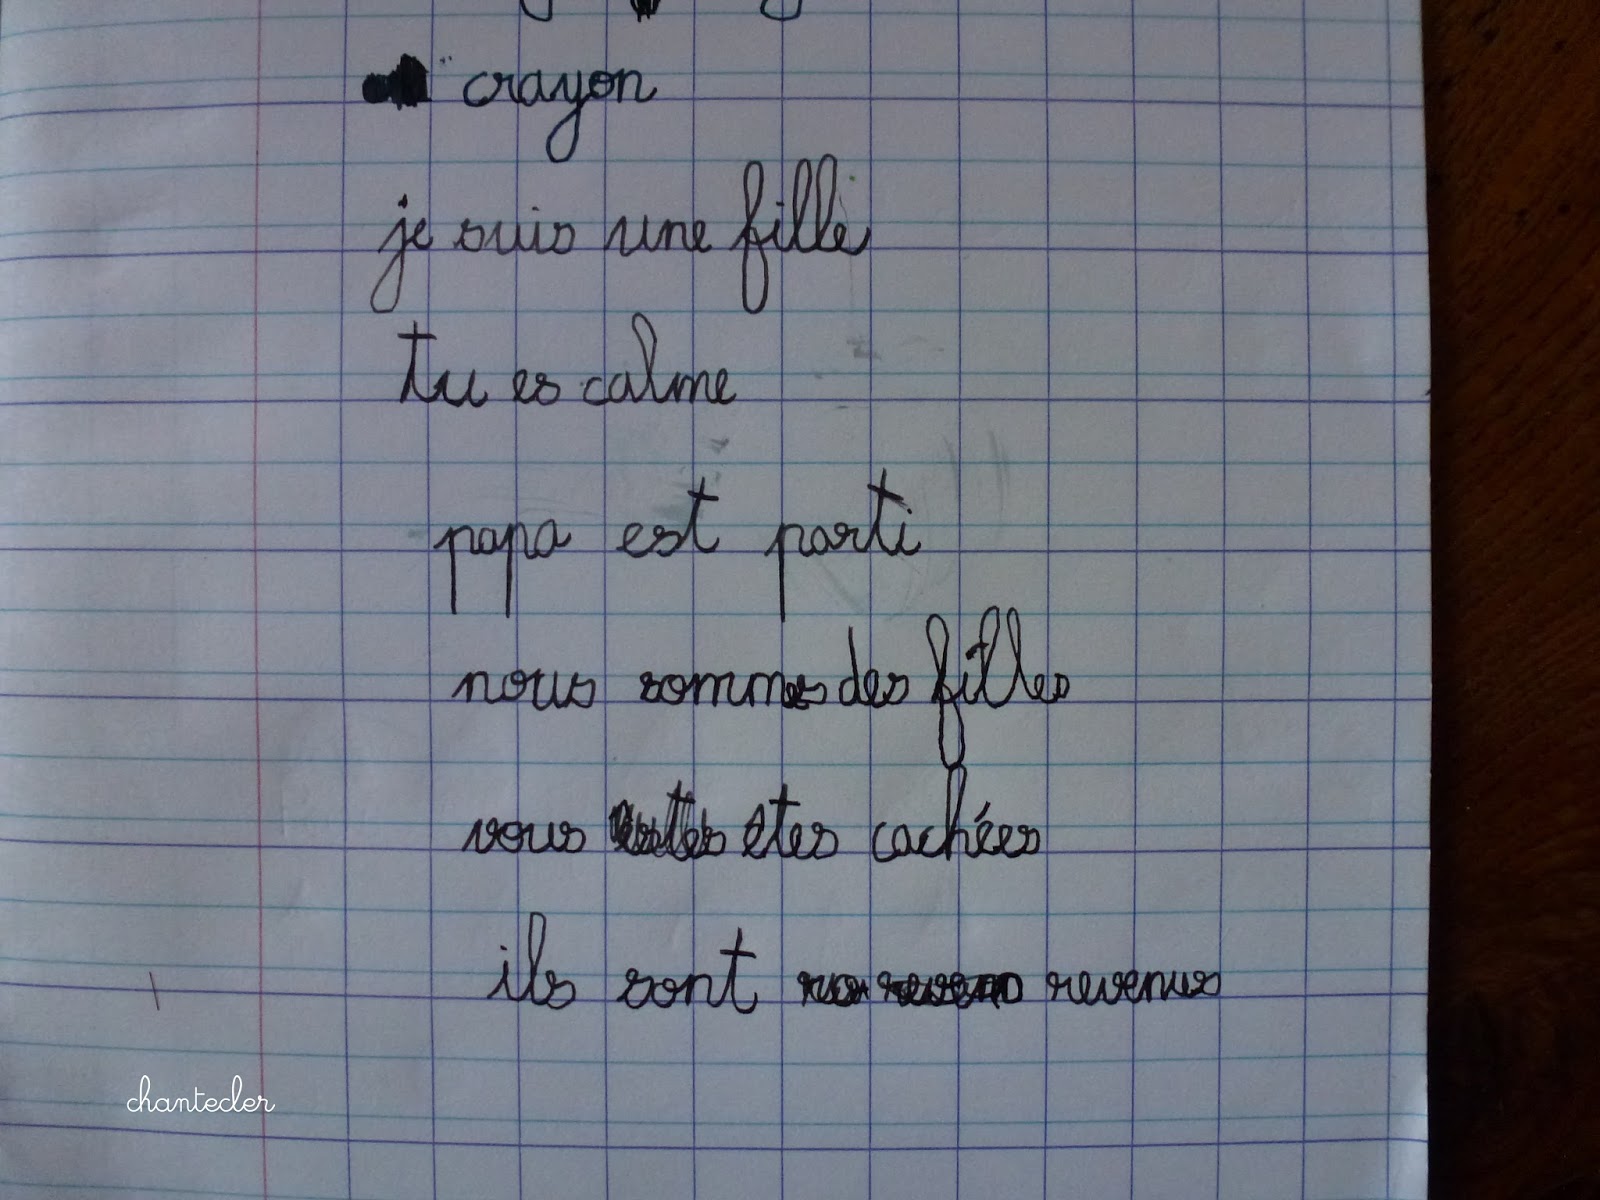 crayon
je suis une fille
tu es calme
papa est parti
nous sommes des filles
vous êtes cachées
ils sont revenus
chantecler